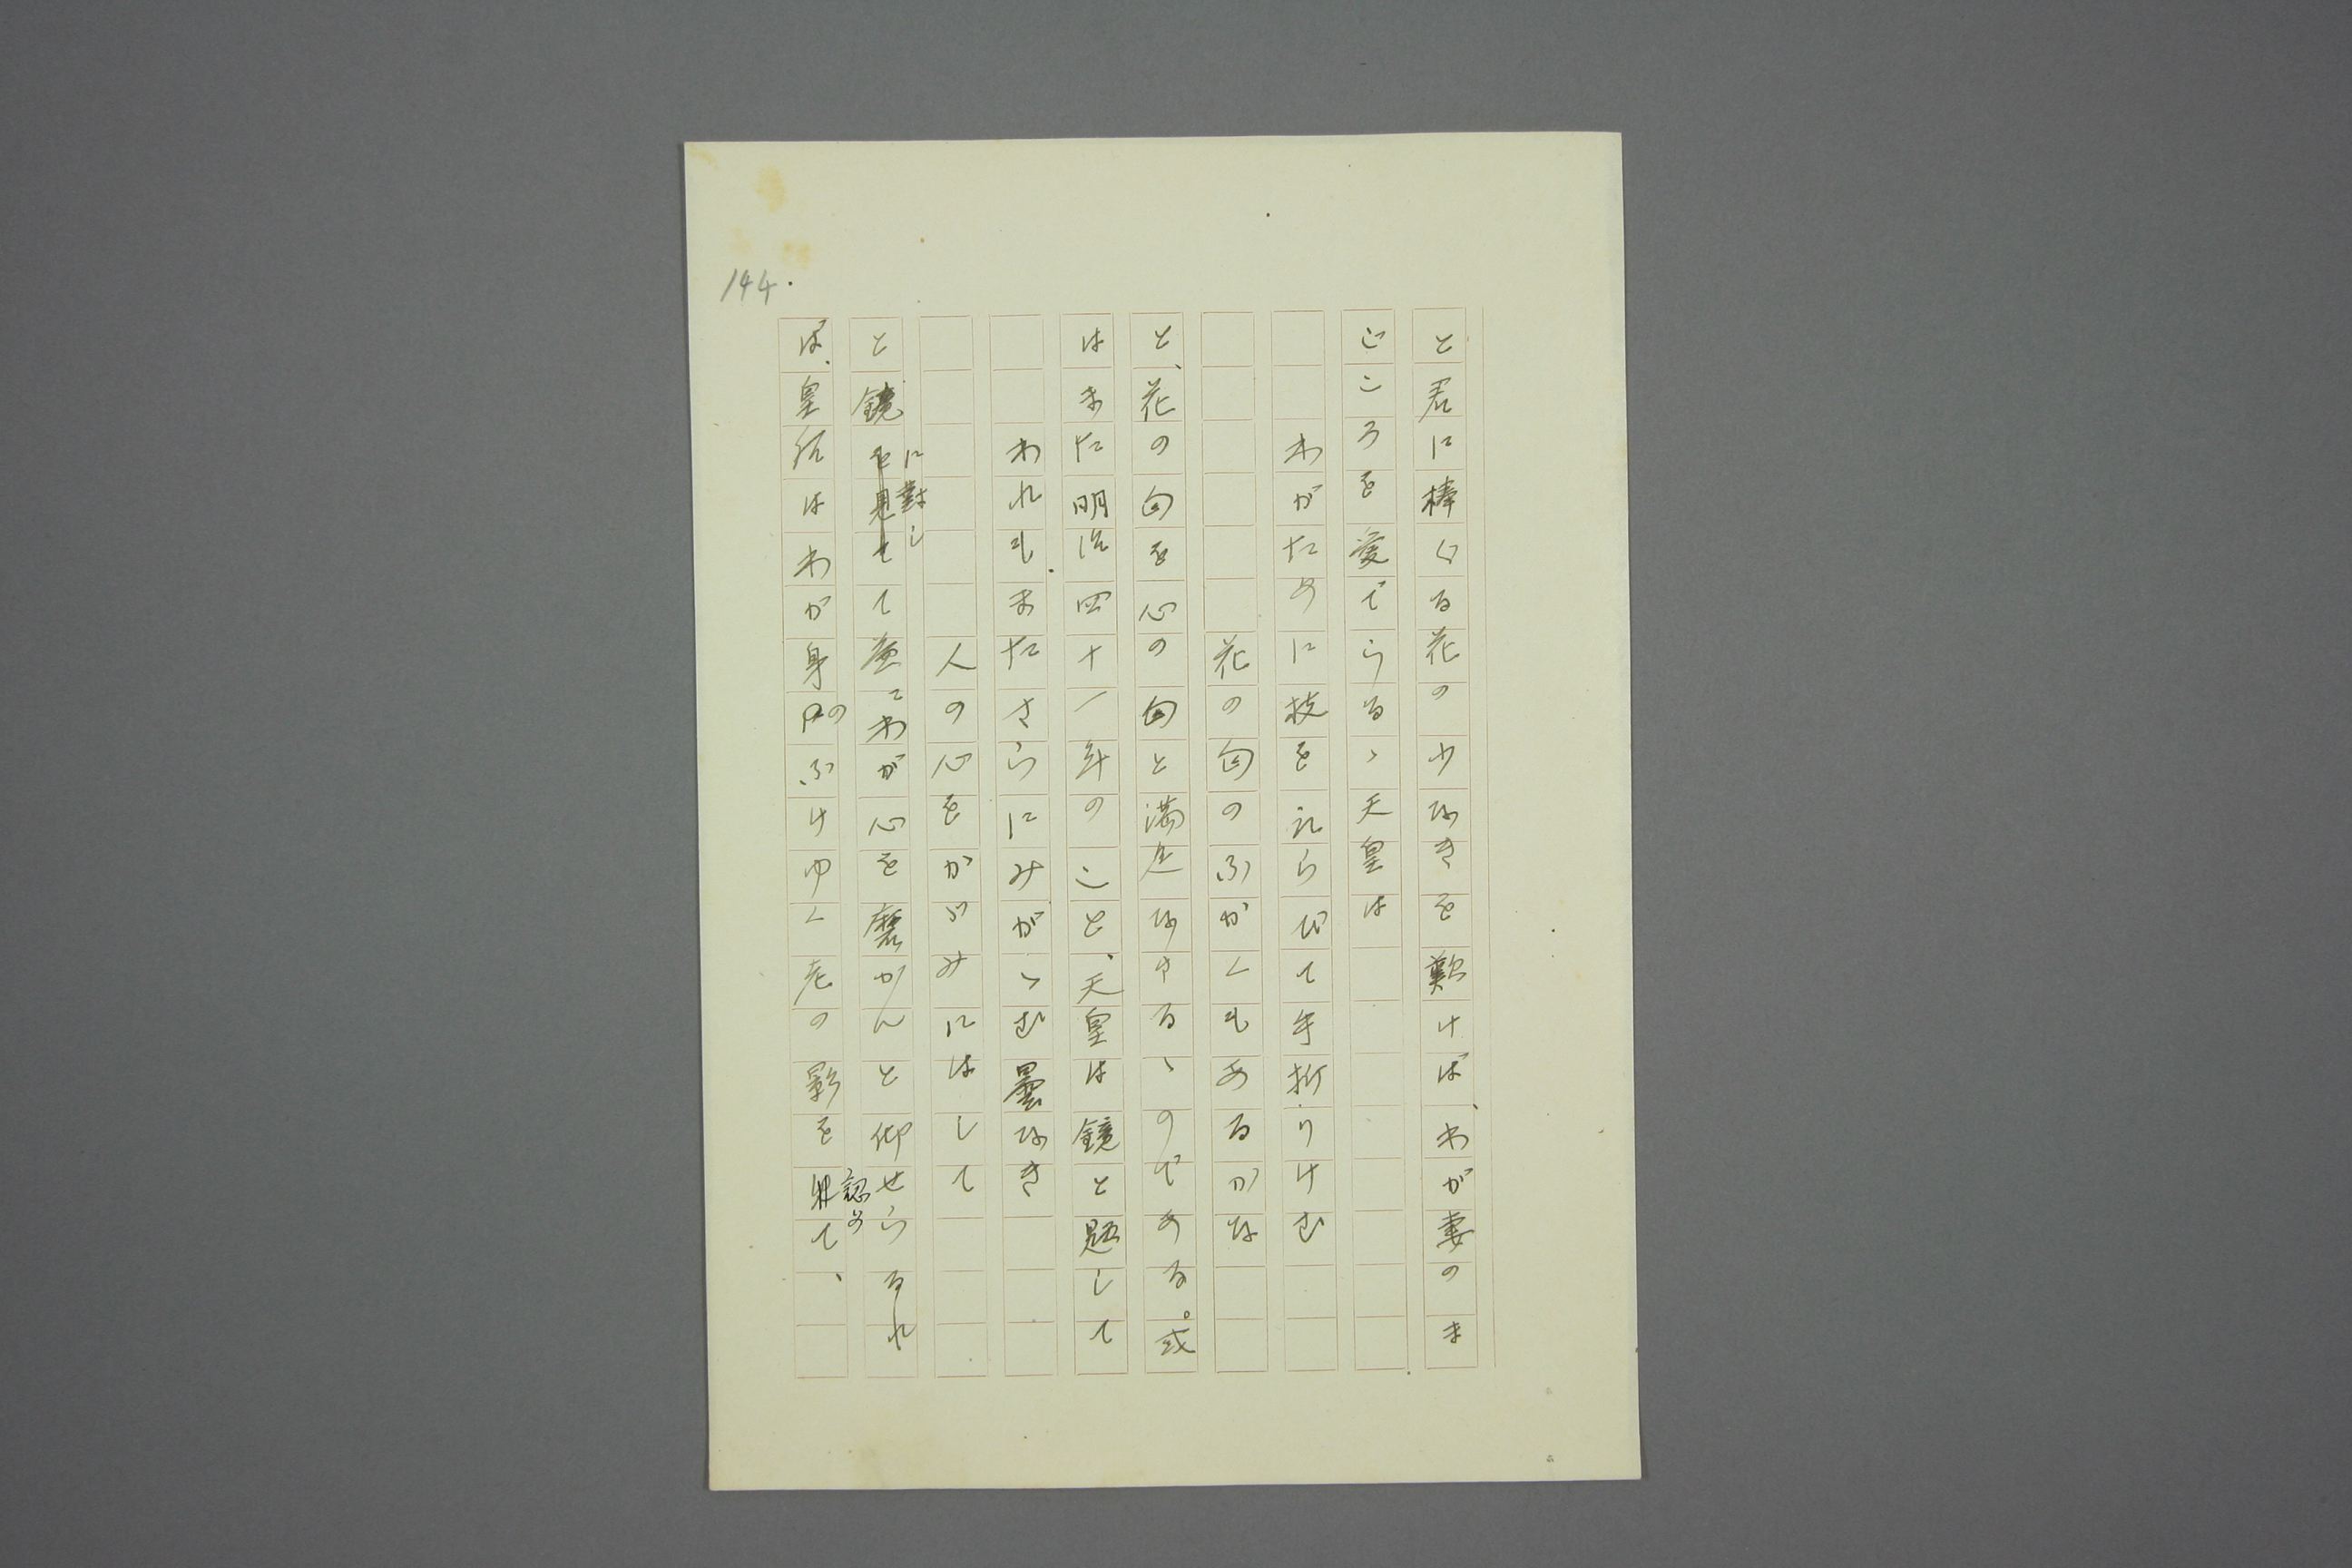 144.
と君に捧ぐる花の少なきを歎けば、わが妻のま
ごころを愛でらるゝ天皇は
わがために枝をえらびて手折りけむ
花の匂のふかくもあるかな
と、花の匂を心の匂と満足なさるゝのである。或
はまた明治四十一年のこと、天皇は鏡と題して
われもまたさらにみがゝむ曇なき
人の心をかゞみにはして
と鏡に對して益〻わが心を磨かんと仰せらるれ
ば、皇后はわが身のふけゆく老の影を認めて、